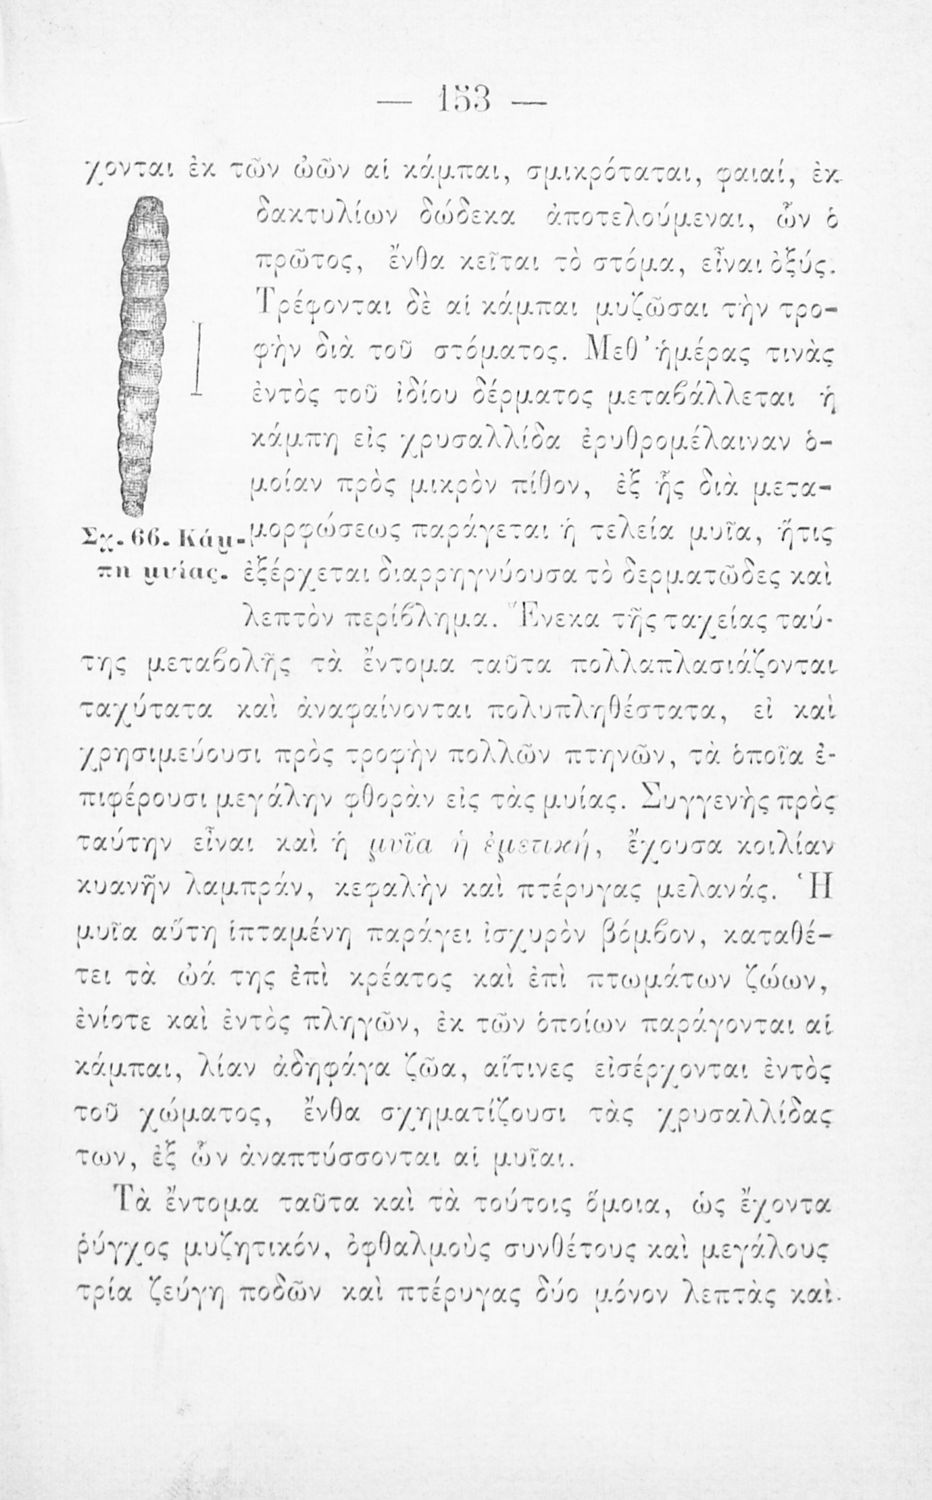 — 153 —
χονται ἐκ τῶν ὠῶν αἱ κάμπαι, σμικρόταται, φαιαί, ἐκ
δακτυλίων δώδεκα ἀποτελούμεναι, ὧν ὁ
πρῶτος, ἔνθα κεῖται τὸ στόμα, εἶναι ὀξύς.
Τρέφονται δὲ αἱ κάμπαι μυζῶσαι τὴν τρο-
φὴν διὰ τοῦ στόματος. Μεθ' ἡμέρας τινὰς
ἐντὸς τοῦ ἰδίου δέρματος μεταβάλλεται ἡ
κάμπη εἰς χρυσαλλίδα ἐρυθρομέλαιναν ὁ-
μοίαν πρὸς μικρὸν πίθον, ἐξ ἧς διὰ μετα-
μορφώσεως παράγεται ἡ τελεία μυῖα, ἥτις
ἐξέρχεται διαρρηγνύουσα τὸ δερματῶδες καὶ
λεπτὸν περίβλημα. Ἕνεκα τῆς ταχείας ταύ-
Σχ. 66. Κάμ-
πη μυίας.
της μεταβολῆς τὰ ἔντομα ταῦτα πολλαπλασιάζονται
ταχύτατα καὶ ἀναφαίνονται πολυπληθέστατα, εἰ καὶ
χρησιμεύουσι πρὸς τροφὴν πολλῶν πτηνῶν, τὰ ὁποῖα ἐ-
πιφέρουσι μεγάλην φθορὰν εἰς τὰς μυίας. Συγγενὴς πρὸς
ταύτην εἶναι καὶ ἡ μυῖα ἡ ἐμετική, ἔχουσα κοιλίαν
κυανῆν λαμπράν, κεφαλὴν καὶ πτέρυγας μελανάς. Ἡ
μυῖα αὕτη ἱπταμένη παράγει ἰσχυρὸν βόμβον, καταθέ-
τει τὰ ὠά της ἐπὶ κρέατος καὶ ἐπὶ πτωμάτων ζώων,
ἐνίοτε καὶ ἐντὸς πληγῶν, ἐκ τῶν ὁποίων παράγονται αἱ
κάμπαι, λίαν ἀδηφάγα ζῶα, αἵτινες εἰσέρχονται ἐντὸς
τοῦ χώματος, ἔνθα σχηματίζουσι τὰς χρυσαλλίδας
των, ἐξ ὧν ἀναπτύσσονται αἱ μυῖαι.
Τὰ ἔντομα ταῦτα καὶ τὰ τούτοις ὅμοια, ὡς ἔχοντα
ῥύγχος μυζητικόν, ὀφθαλμοὺς συνθέτους καὶ μεγάλους
τρία ζεύγη ποδῶν καὶ πτέρυγας δύο μόνον λεπτὰς καὶ